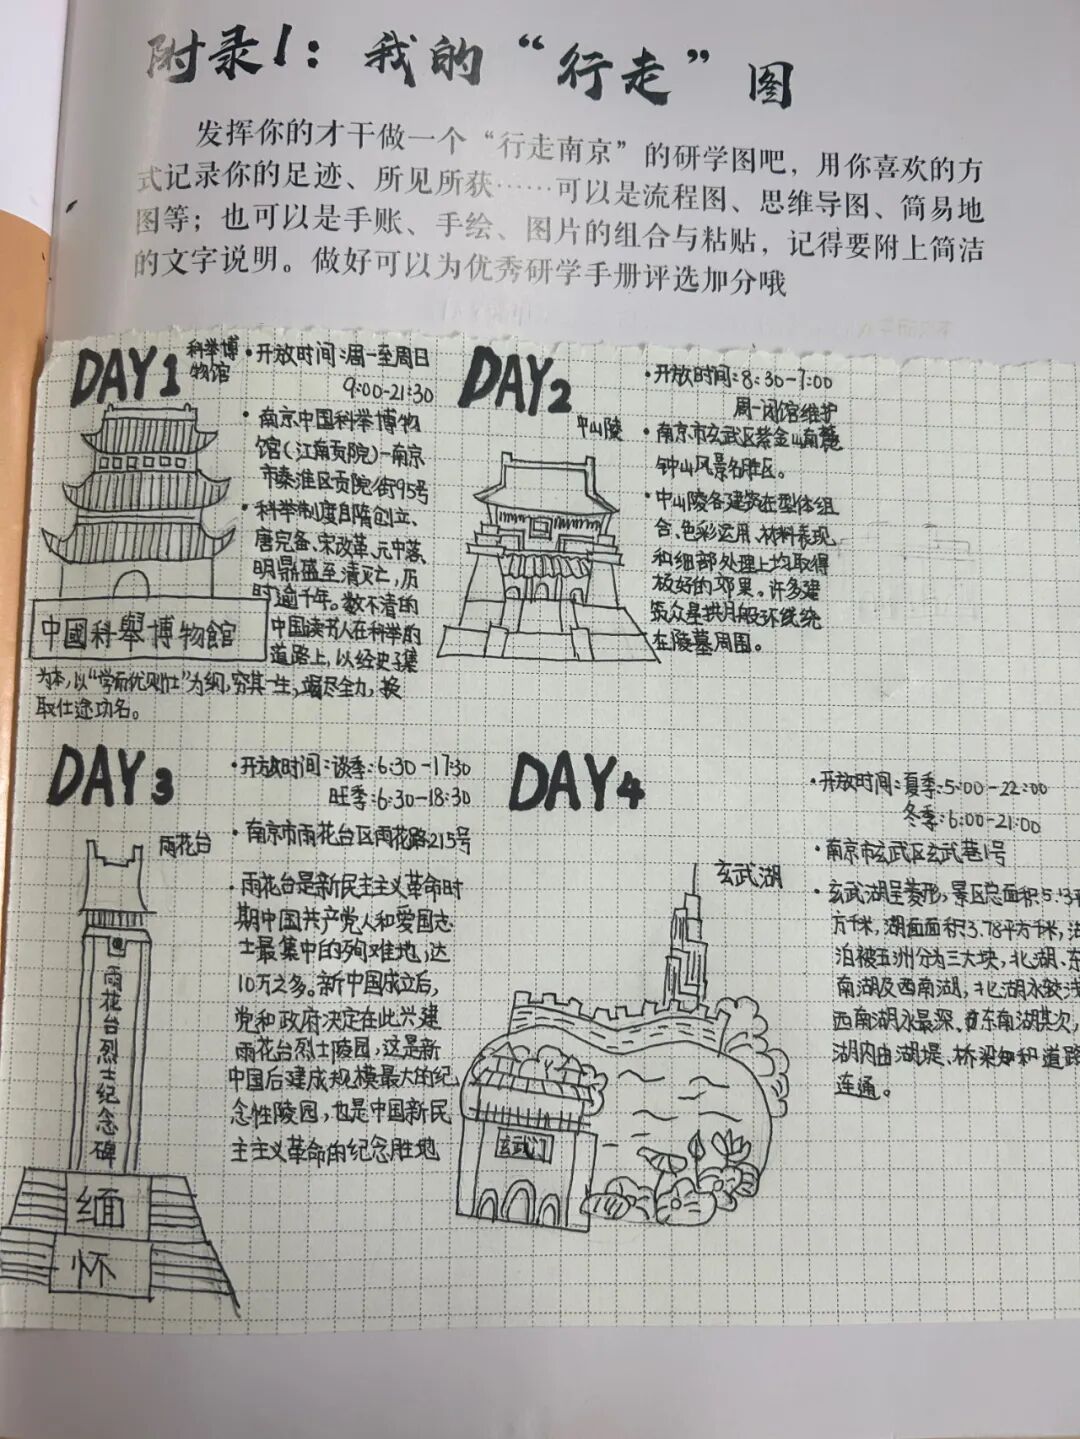 附录1：我的“行走”图
发挥你的才干做一个“行走南京”的研学图吧，用你喜欢的方
式记录你的足迹、所见所获……可以是流程图、思维导图、简易地
图等；也可以是手账、手绘、图片的组合与粘贴，记得要附上简洁
的文字说明。做好可以为优秀研学手册评选加分哦
DAY1
科举博
物馆
·开放时间：周一至周日
9:00-21:30
·南京中国科举博物
馆(江南贡院)-南京
市秦淮区贡院街95号
·科举制度自隋创立、
唐完备、宋改革、元中落、
明鼎盛至清灭亡，历
时逾千年。数不清的
中国读书人在科举的
道路上，以经史子集
为本，以“学而优则仕”为纲，穷其一生，竭尽全力，换
取仕途功名。
中國科舉博物館
DAY2
中山陵
·开放时间：8:30-7:00
周一闭馆维护
·南京市玄武区紫金山南麓
钟山风景名胜区。
·中山陵各建筑在型体组
合、色彩运用、材料表现
和细部处理上均取得
极好的郊果。许多建
筑众星拱月般环绕统
在陵墓周围。
DAY3
雨花台
·开放时间：谈季：6:30-17:30
旺季：6:30-18:30
·南京市雨花台区雨花路215号
·雨花台是新民主主义革命时
期中国共产党人和爱国志
士最集中的殉难地，达
10万之多。新中国成立后，
党和政府决定在此兴建
雨花台烈士陵园，这是新
中国后建成规模最大的纪
念性陵园，也是中国新民
主主义革命的纪念胜地
雨花台烈士纪念碑
缅
怀
DAY4
玄武湖
·开放时间：夏季：5:00-22:00
冬季：6:00-21:00
·南京市玄武区玄武巷1号
·玄武湖呈菱形，景区总面积5.13平
方千米，湖面面积3.78平方千米，湖
泊被五洲分为三大块，北湖、东
南湖及西南湖，北湖水较浅
西南湖水最深、东南湖其次，
湖内由湖堤、桥梁和道路
连通。
玄武门